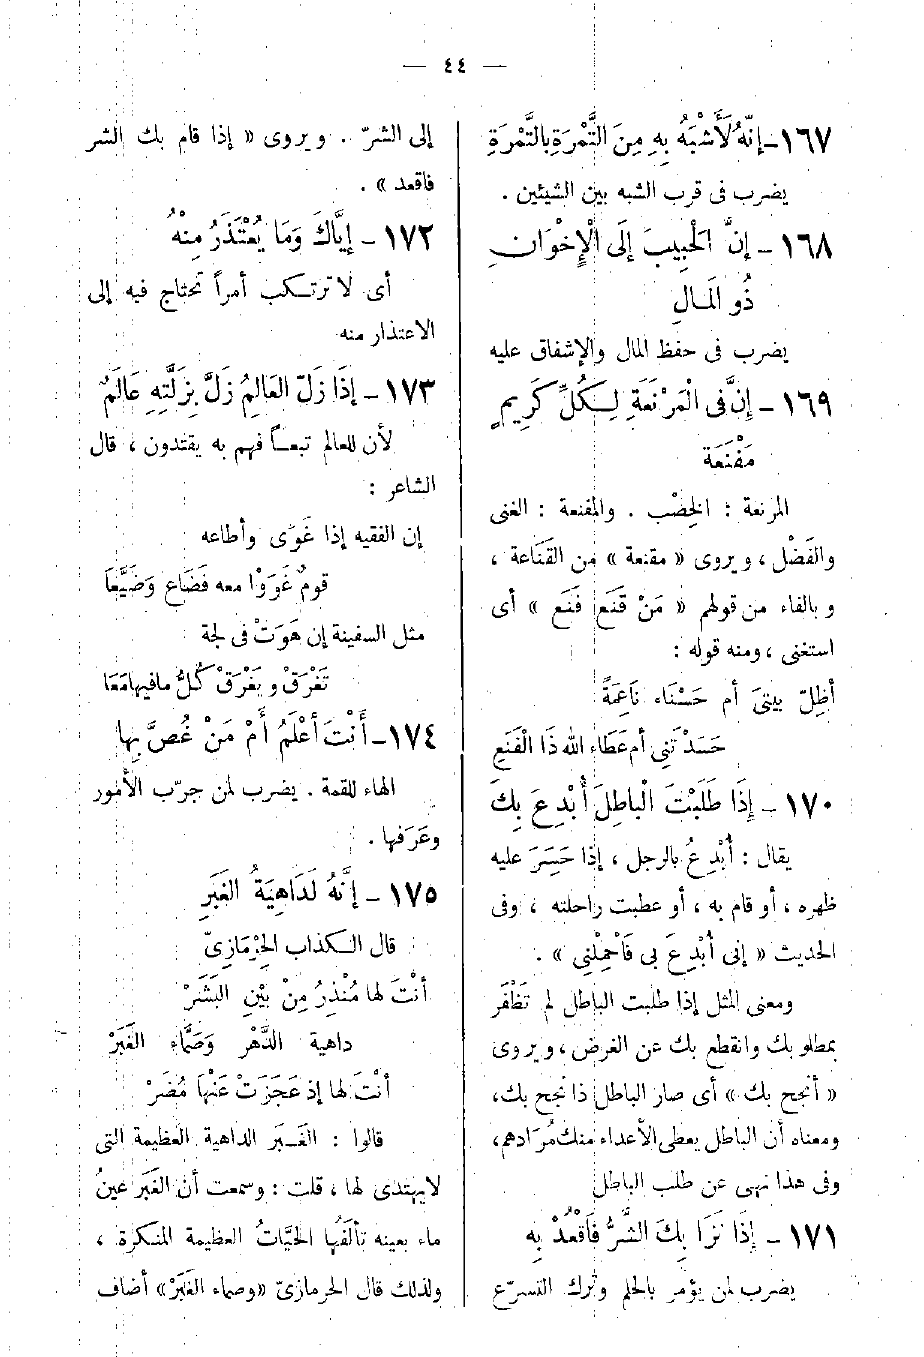 — ٤٤ —
١٦٧ـ إنّهُ لَأَشْبَهُ بِهِ مِنَ التَّمْرَةِ بِالتَّمْرَةِ
يضرب فى قرب الشبه بين الشيئين .
١٦٨ ـ إنَّ الْحَبِيبَ إلَى الْإِخْوَانِ
ذُو الْمَـالِ
يضرب فى حفظ المال والإشفاق عليه
١٦٩ ـ إنَّ فى الْمَرْنَعَةِ لِـكُلِّ كَرِيمٍ
مَفْنَعَة
المرنعة : الخِصْب . والمفنعة : الغنى
والفَضْل ، ويروى « مقنعة » من القَنَاعة ،
وبالفاء من قولهم « مَنْ قَنَعَ فَنَع » أى
استغنى ، ومنه قوله :
أظِلّ بيتىَ أم حَسْنَاء نَاعِمَةً
حَسَدْتَنِى أم عَطَاء الله ذَا الْفَنَعِ
١٧٠ ـ إذَا طَلَبْتَ الْباطِلَ أُبْدِعَ بِكَ
يقال : أُبْدِعُ بالرجل ، إذا حَسِرَ عليه
ظهره ، أو قام به ، أو عطبت راحلته ، وفى
الحديث « إنى أُبْدِعَ بى فَاحْمِلْنِى » .
ومعنى المثل إذا طلبت الباطل لم تَظْفَر
بمطلوبك وانقطع بك عن الغرض ، ويروى
« أنجح بك » أى صار الباطل ذا نجح بك،
ومعناه أن الباطل يعطى الأعداء منك مُرَادهم،
وفى هذا نهى عن طلب الباطل
١٧١ ـ إذَا نَزَا بِكَ الشَّرُّ فَاقْعُدْ بِهِ
يضرب لمن يؤمر بالحلم وترك التسرّع
إلى الشرّ . ويروى « إذا قام بك الشر
فاقعد » .
١٧٢ ـ إيَّاكَ وَمَا يُعْتَذَرُ مِنْهُ
أى لا ترتـكب أمراً تحتاج فيه إلى
الاعتذار منه
١٧٣ ـ إذَا زَلّ العَالِمُ زَلَّ بِزَلَّتِهِ عَالَمٌ
لأن للعالم تبعـاً فهم به يقتدون ، قال
الشاعر :
إن الفقيه إذا غَوَى وأطاعه
قومٌ غَوَوْا معه فَضَاعَ وَضَيَّعَا
مثل السفينة إن هَوَتْ فى لجة
تَغْرَقْ ويَغْرَقْ كُلُّ مافيها مَعَا
١٧٤ـ أَنْتَ أعْلَمُ أَمْ مَنْ غُصَّ بِها
الهاء للقمة . يضرب لمن جرّب الأمور
وعَرَفها .
١٧٥ ـ إنَّهُ لَدَاهِيَةُ الغَبَرِ
قال الـكذاب الحِرْمَازِىّ
أنْتَ لها مُنْذِرُ مِنْ بَيْنِ البَشَرْ
داهية الدَّهْر وَصَمَّاء الغَبَرْ
أنْتَ لها إذ عَجَزَتْ عَنْهَا مُضَرْ
قالوا : الغَـبَر الداهية العظيمة التى
لايهتدى لها ، قلت : وسمعت أن الغَبَر عينُ
ماء بعينه تألَفُها الحيَّاتُ العظيمة المنكرة ،
ولذلك قال الحرمازىّ «وصماء الغَبَرْ» أضاف